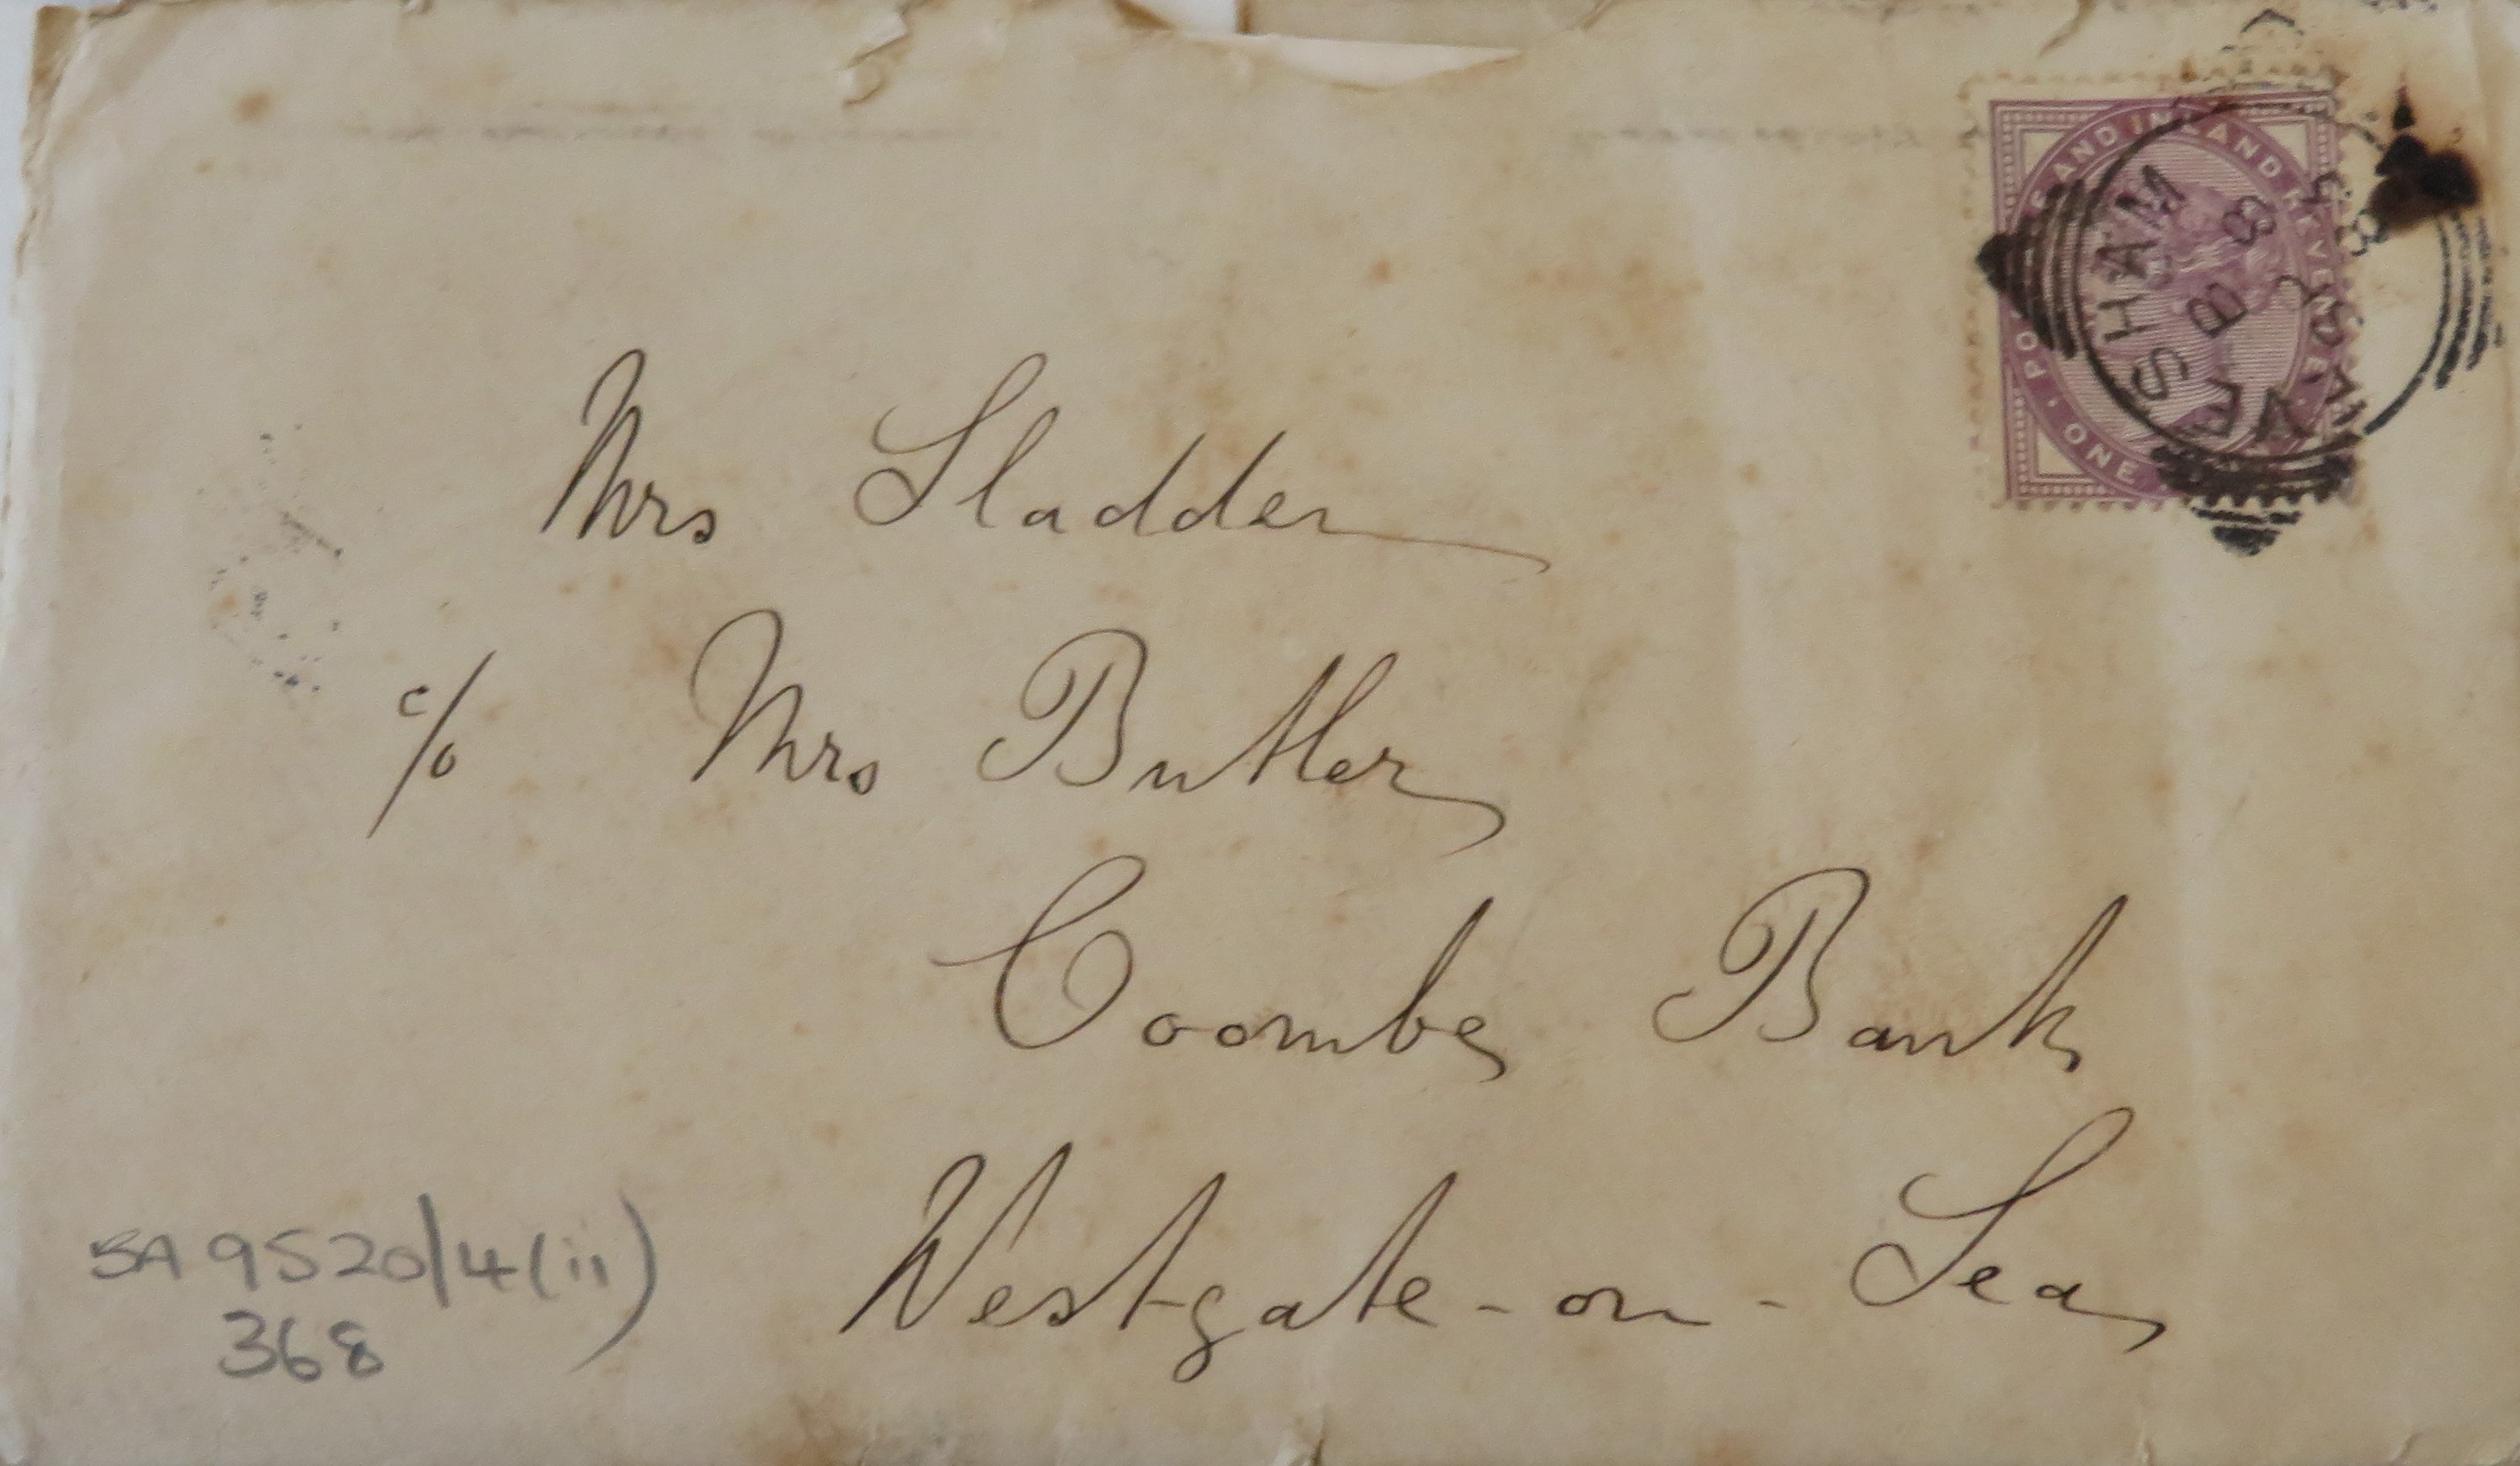 POSTAGE AND INLAND REVENUE
ONE
EVESHAM
Mrs Sladden
c/o Mrs Butler
Coombe Bank
Westgate-on-Sea
BA 9520/4(ii)
368